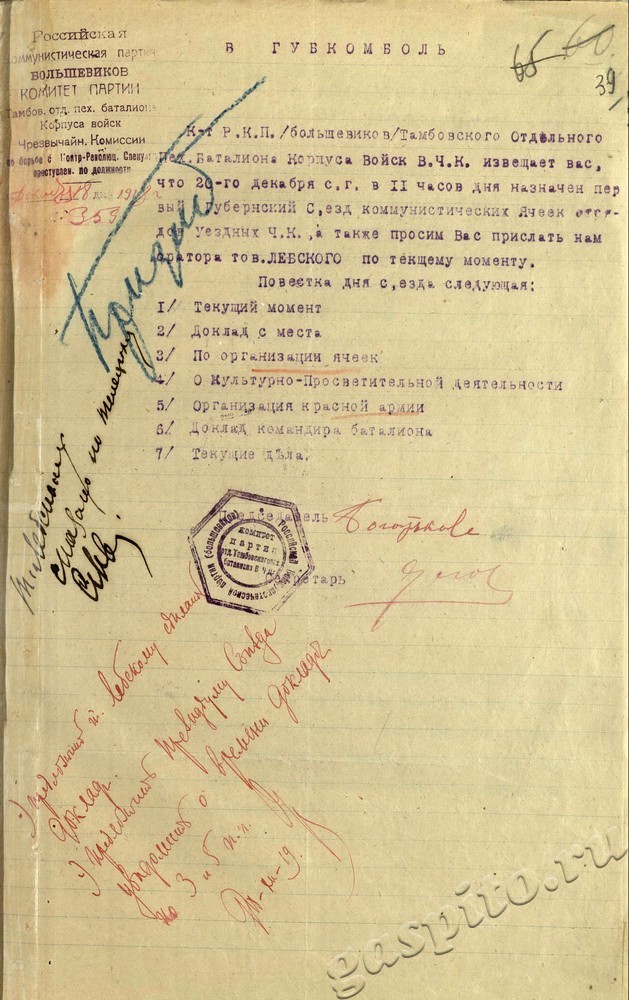 Российская
Коммунистическая партия
БОЛЬШЕВИКОВ
КОМИТЕТ ПАРТИИ
Тамбов. отд. пех. баталиона
Корпуса войск
Чрезвычайн. Комиссии
по борьбе с Контр-Революц. Спекул.
преступлен. по должности
353
65 60
39
В ГУБКОМБОЛЬ
К-т Р.К.П./большевиков/Тамбовского Отдельного
Пех.Баталиона Корпуса Войск В.Ч.К. извещает вас,
что 20-го декабря с.г. в II часов дня назначен пер
вый Губернский С,езд коммунистических Ячеек отря-
дов Уездных Ч.К.,а также просим Вас прислать нам
оратора тов.ЛЕБСКОГО по текщему моменту.
Повестка дня с,езда следующая:
1/ Текущий момент
2/ Доклад с места
3/ По организации ячеек
4/ О Культурно-Просветительной деятельности
5/ Организация красной армии
6/ Доклад командира баталиона
7/ Текущие дѣла.
Председатель
Секретарь
Российская Коммунистическая партия (большевиков)
комитет
партии
отд. Тамбовского
баталиона В.Ч.К.
сказать по телефону
1) Предложить т. Лебскому сделать
доклад.
2) Предложить президиуму Съезда
уведомить о времени доклада
по 3 и 5 п.п.
gaspito.ru